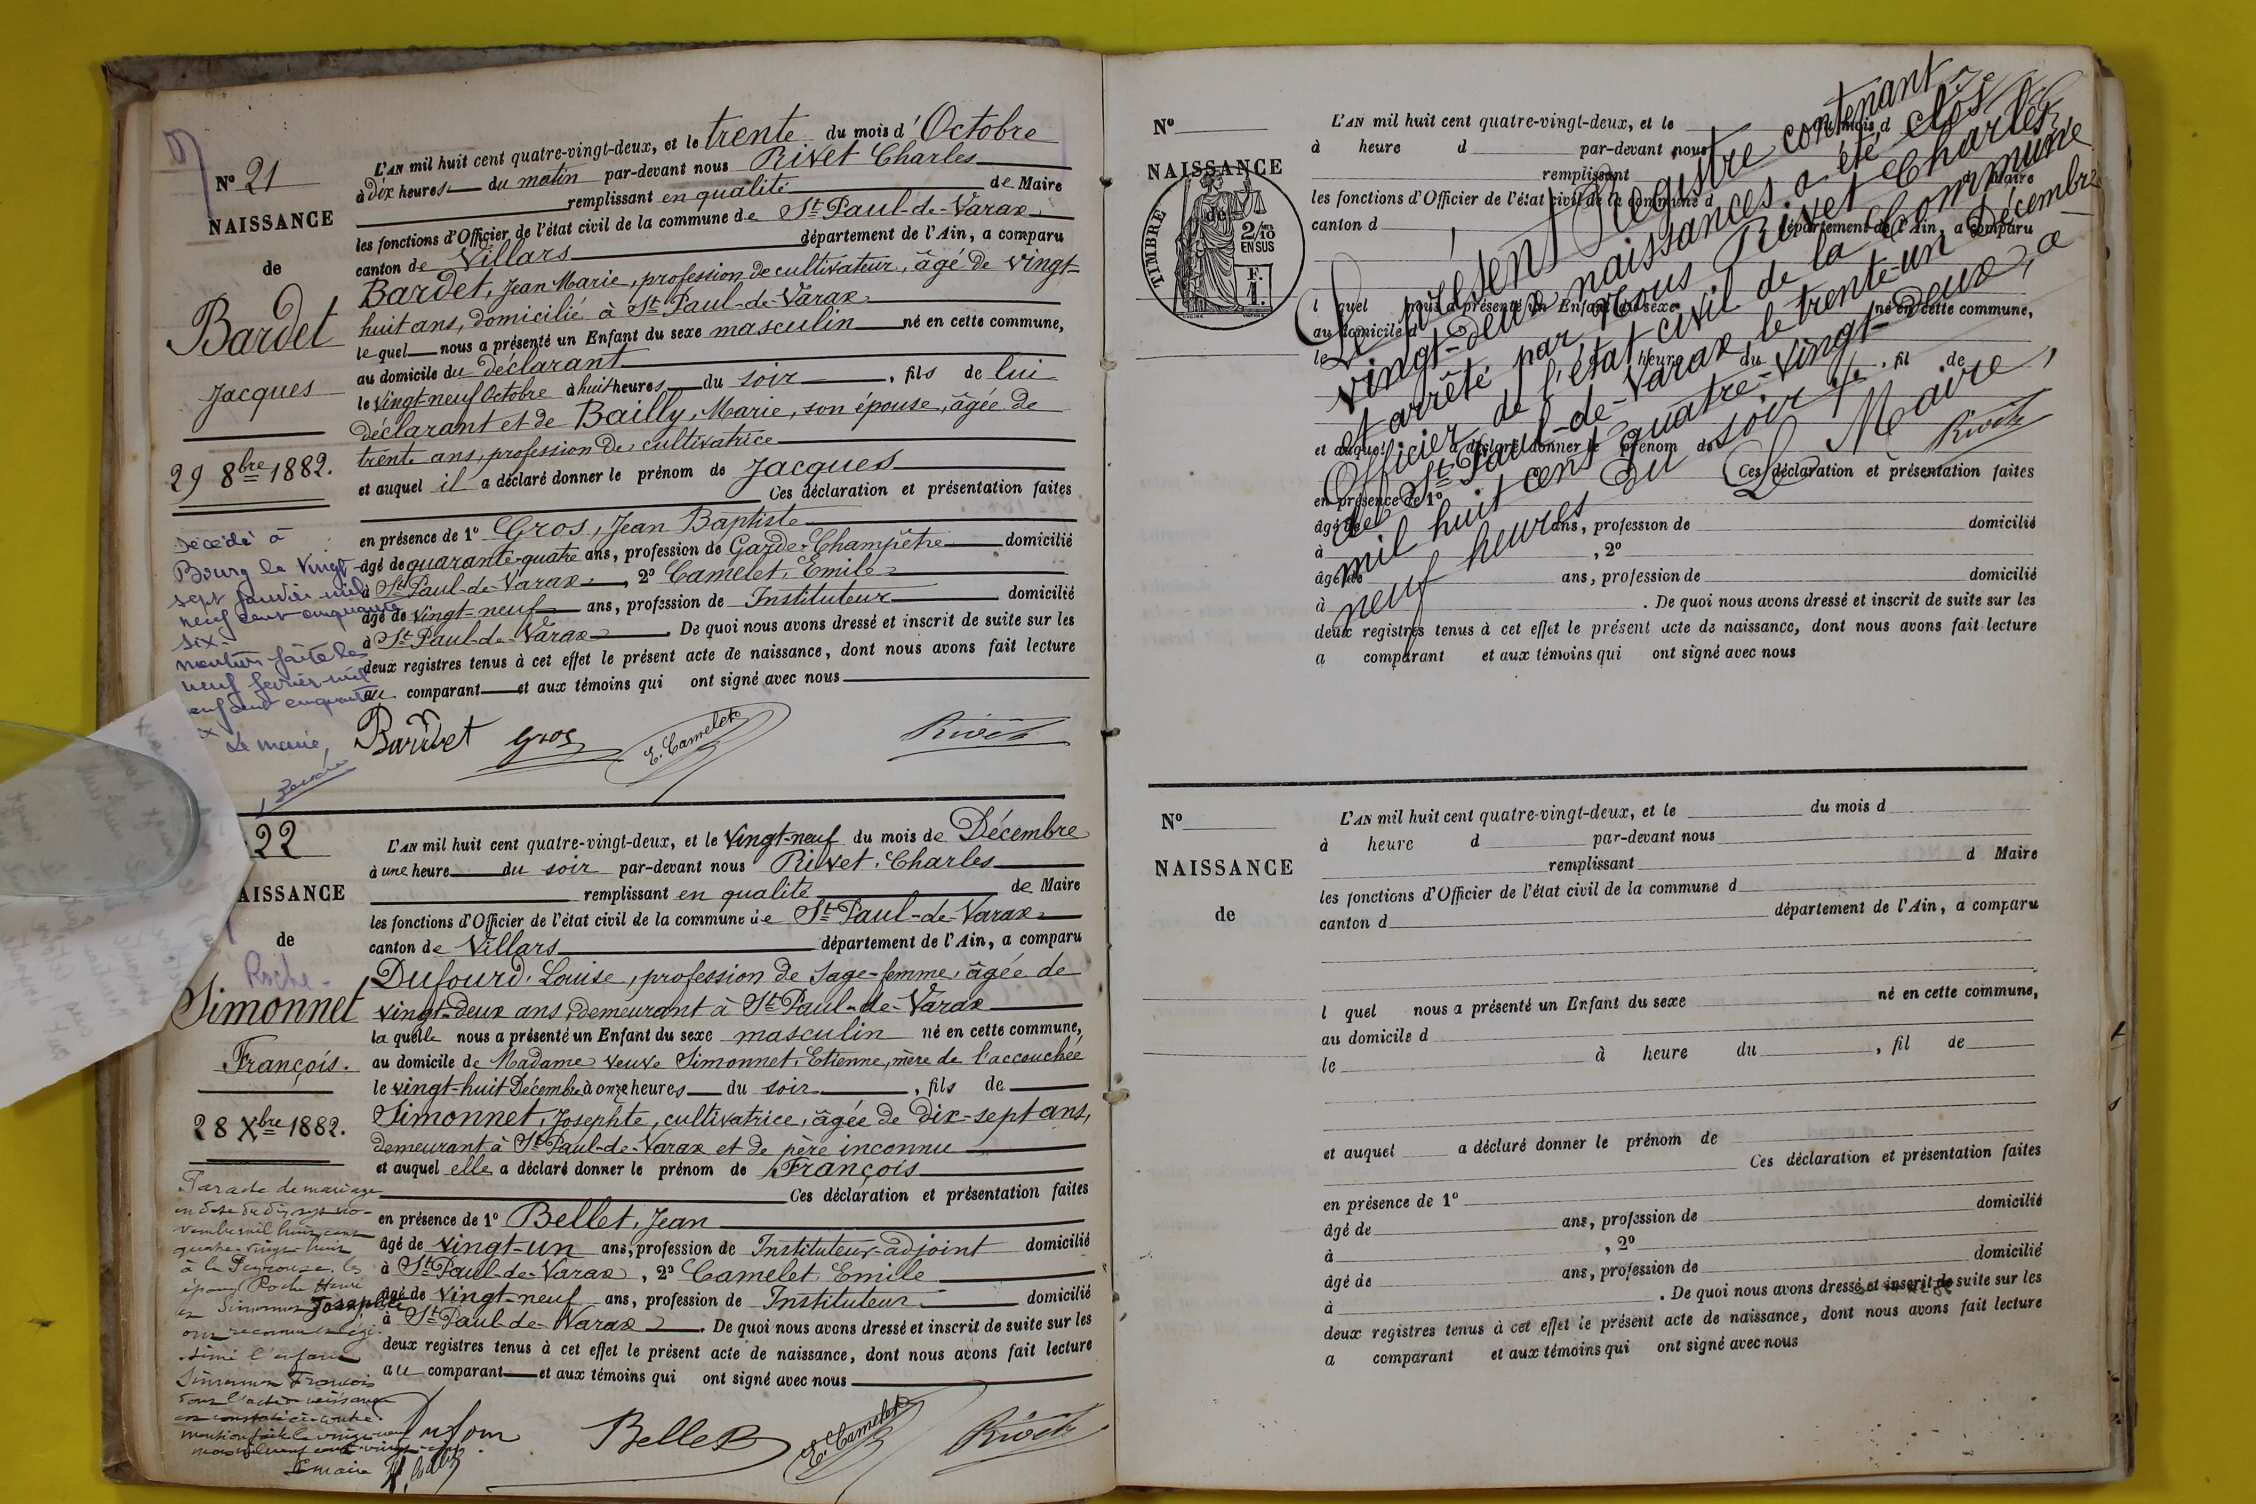 Nº 21
NAISSANCE
de
Bardet
Jacques
29 8bre 1882.
Décédé à
Bourg le vingt-
sept janvier mil
neuf cent cinquante
six.
mention faite le
neuf février mil
neuf cent cinquante
Le maire,
L'AN mil huit cent quatre-vingt-deux, et le trente du mois d'Octobre
à dix heures du matin par-devant nous Rivet Charles
remplissant en qualité de Maire
les fonctions d'Officier de l'état civil de la commune de St Paul-de-Varax
canton de Villars département de l'Ain, a comparu
Bardet, Jean Marie, profession de cultivateur, âgé de vingt-
huit ans, domicilié à St Paul-de-Varax
le quel nous a présenté un Enfant du sexe masculin né en cette commune,
au domicile du déclarant
le vingt-neuf Octobre à huit heures du soir, fils de lui
déclarant et de Bailly, Marie, son épouse, âgée de
trente ans, profession de cultivatrice
et auquel il a déclaré donner le prénom de Jacques
Ces déclaration et présentation faites
en présence de 1º Gros, Jean Baptiste
âgé de quarante-quatre ans, profession de Garde-Champêtre domicilié
à St Paul-de-Varax, 2º Camelet, Emile
âgé de vingt-neuf ans, profession de Instituteur domicilié
à St Paul-de-Varax. De quoi nous avons dressé et inscrit de suite sur les
deux registres tenus à cet effet le présent acte de naissance, dont nous avons fait lecture
au comparant et aux témoins qui ont signé avec nous
Bardet Gros E. Camelet Rivet
22
AISSANCE
de
Roche-
Simonnet
François.
28 Xbre 1882.
Par acte de mariage
en date du dix sept no-
vembre mil huit cent
quatre-vingt-huit
à la Peyrouse, les
époux Roche Henri
et Simonnet Josephte
ont reconnu et légi-
timé l'enfant
Simonnet François
dont l'acte de naissance
est constaté ci-contre.
Le maire
L'AN mil huit cent quatre-vingt-deux, et le vingt-neuf du mois de Décembre
à une heure du soir par-devant nous Rivet, Charles
remplissant en qualité de Maire
les fonctions d'Officier de l'état civil de la commune de St Paul-de-Varax
canton de Villars département de l'Ain, a comparu
Dufourd, Louise, profession de Sage-femme, âgée de
vingt-deux ans demeurant à St Paul-de-Varax
la quelle nous a présenté un Enfant du sexe masculin né en cette commune,
au domicile de Madame veuve Simonnet, Etienne, mère de l'accouchée
le vingt-huit Décembre à onze heures du soir, fils de
Simonnet, Josephte, cultivatrice, âgée de dix-sept ans,
demeurant à St Paul-de-Varax et de père inconnu
et auquel elle a déclaré donner le prénom de François
Ces déclaration et présentation faites
en présence de 1º Bellet, Jean
âgé de vingt-un ans, profession de Instituteur-adjoint domicilié
à St Paul-de-Varax, 2º Camelet Emile
âgé de vingt-neuf ans, profession de Instituteur domicilié
à St Paul-de-Varax. De quoi nous avons dressé et inscrit de suite sur les
deux registres tenus à cet effet le présent acte de naissance, dont nous avons fait lecture
au comparant et aux témoins qui ont signé avec nous
Dufour Bellet E. Camelet Rivet
Nº
NAISSANCE
de
TIMBRE
2/10
EN SUS
F.
1.
L'AN mil huit cent quatre-vingt-deux, et le du mois d
à heure d par-devant nous
remplissant d Maire
les fonctions d'Officier de l'état civil de la commune d
canton d département de l'Ain, a comparu
l quel nous a présenté un Enfant du sexe né en cette commune,
au domicile d
le à heure du , fil de
et auquel a déclaré donner le prénom de
Ces déclaration et présentation faites
en présence de 1º
âgé de ans, profession de domicilié
à , 2º
âgé de ans, profession de domicilié
à . De quoi nous avons dressé et inscrit de suite sur les
deux registres tenus à cet effet le présent acte de naissance, dont nous avons fait lecture
a comparant et aux témoins qui ont signé avec nous
Le présent Registre contenant
vingt-deux naissances a été clos
et arrêté par Nous Rivet Charles,
Officier de l'état civil de la Commune
de St Paul-de-Varax, le trente-un Décembre
mil huit cent quatre-vingt-deux, à
neuf heures du soir.
Le Maire,
Rivet
Nº
NAISSANCE
de
L'AN mil huit cent quatre-vingt-deux, et le du mois d
à heure d par-devant nous
remplissant d Maire
les fonctions d'Officier de l'état civil de la commune d
canton d département de l'Ain, a comparu
l quel nous a présenté un Enfant du sexe né en cette commune,
au domicile d
le à heure du , fil de
et auquel a déclaré donner le prénom de
Ces déclaration et présentation faites
en présence de 1º
âgé de ans, profession de domicilié
à , 2º
âgé de ans, profession de domicilié
à . De quoi nous avons dressé et inscrit de suite sur les
deux registres tenus à cet effet le présent acte de naissance, dont nous avons fait lecture
a comparant et aux témoins qui ont signé avec nous